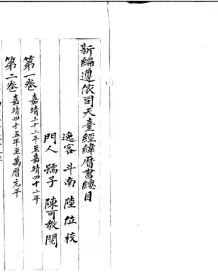 新編遵依司天臺經緯曆書總目
逸客斗南陸位校
門人孺子陳可教閱
第一卷嘉靖三十三年至嘉靖四十四年
第二卷嘉靖四十五年至萬曆元年